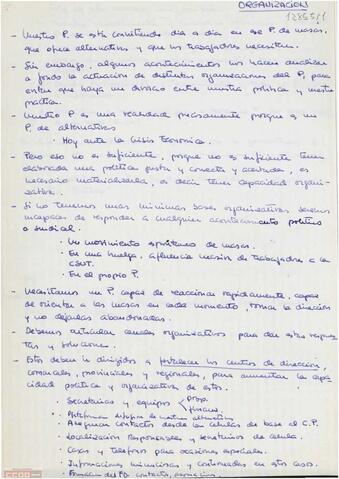 ORGANIZACION
1285 5/1
- Nuestro P. se está construyendo día a día en ese P. de masas,
que ofrece alternativas y que los trabajadores necesitan.
- Sin embargo, algunos acontecimientos nos hacen analizar
a fondo la actuación de distintas organizaciones del P, para
evitar que haya un divorcio entre nuestra política y nuestra
práctica.
- Nuestro P es una realidad precisamente porque es un
P. de alternativas
· Hoy ante la Crisis Económica.
- Pero eso no es suficiente, porque no es suficiente tener
elaborada una política justa y correcta y acertada, es
necesario materializarla, es decir tener capacidad organi-
zativa.
- Si no tenemos unas mínimas bases organizativas seremos
incapaces de responder a cualquier acontecimiento político
o sindical.
· Un movimiento espontáneo de masas.
· En una huelga, afluencia masiva de trabajadores a la
CSUT.
· En el propio P.
- Necesitamos un P. capaz de reaccionar rápidamente, capaz
de orientar a las masas en cada momento, tomar la dirección
y no dejarlas abandonadas.
- Debemos articular canales organizativos para dar estas respues
tas y soluciones.
- Estos deben ir dirigidos a fortalecer los centros de dirección,
comarcales, provinciales y regionales, para aumentar la capa-
cidad política y organizativa de estos.
· Secretarías y equipos
Prop.
finanz.
· Asegurar contactos desde las células de base al C.P.
· Localización responsables y secretarios de célula.
· Casas y teléfonos para ocasiones especiales.
· Informaciones minuciosas y continuadas en estos casos.
CCOO